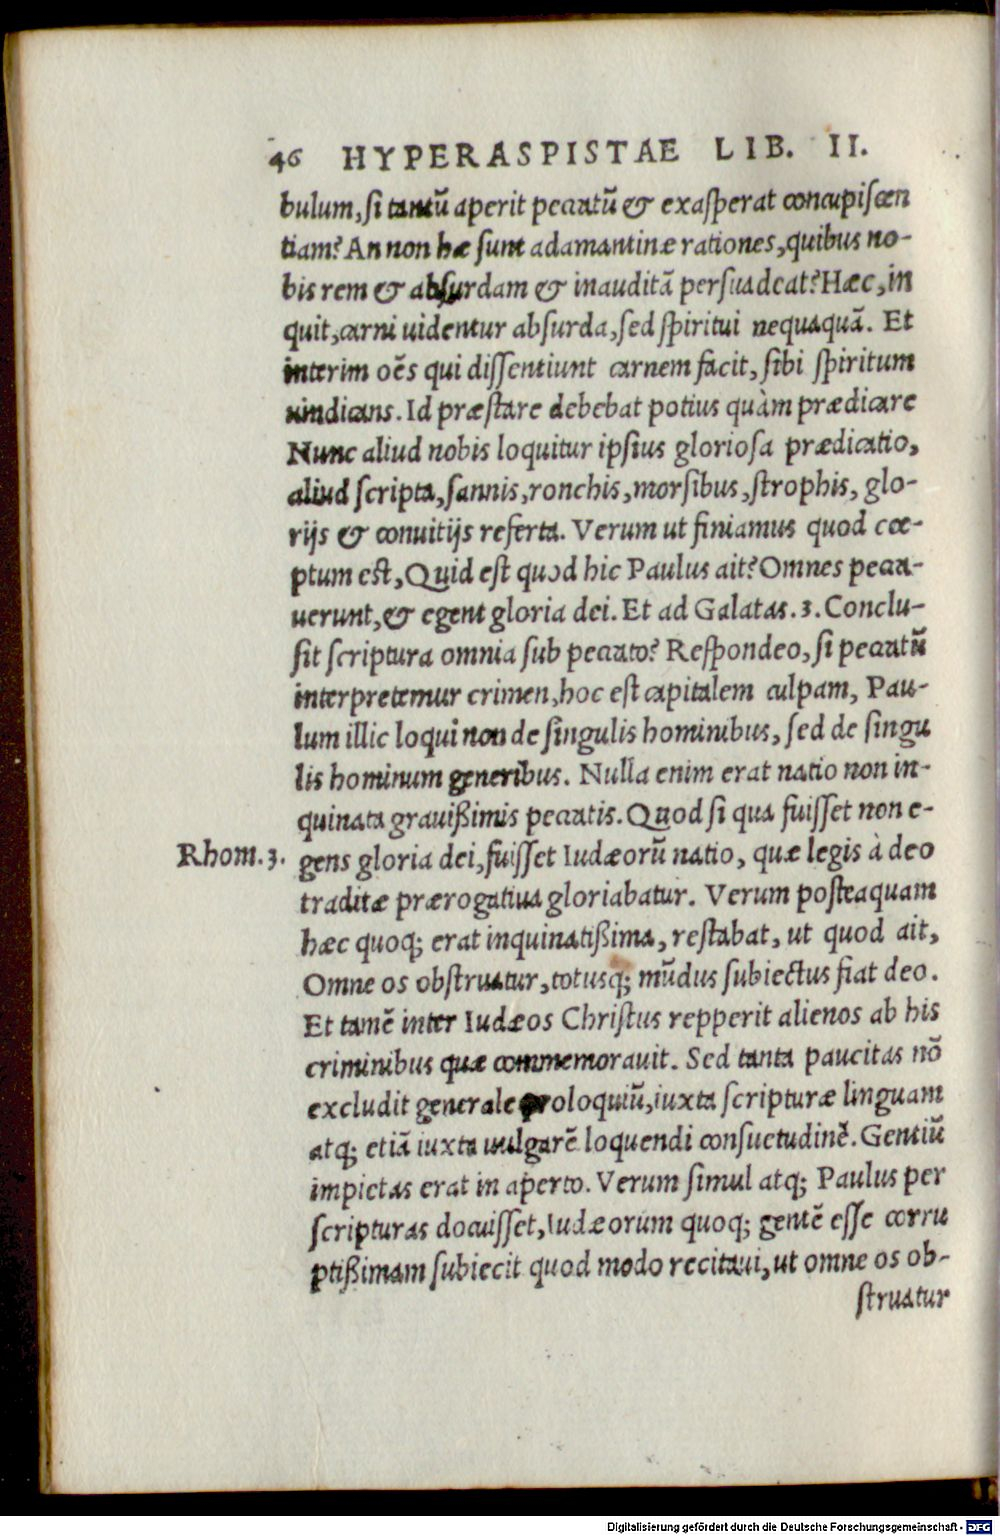 46 HYPERASPISTAE LIB. II.
bulum, si tantũ aperit peccatũ & exasperat concupiscen
tiam? An non hæ sunt adamantinæ rationes, quibus no-
bis rem & absurdam & inauditã persuadeat? Hæc, in
quit, carni uidentur absurda, sed spiritui nequaquã. Et
interim oẽs qui dissentiunt carnem facit, sibi spiritum
uindicans. Id præstare debebat potius quàm prædicare
Nunc aliud nobis loquitur ipsius gloriosa prædicatio,
aliud scripta, sannis, ronchis, morsibus, strophis, glo-
rijs & conuitijs referta. Verum ut finiamus quod cœ-
ptum est, Quid est quod hic Paulus ait? Omnes pecca-
uerunt, & egent gloria dei. Et ad Galatas. 3. Conclu-
sit scriptura omnia sub peccato? Respondeo, si peccatũ
interpretemur crimen, hoc est capitalem culpam, Pau-
lum illic loqui non de singulis hominibus, sed de singu
lis hominum generibus. Nulla enim erat natio non in-
quinata grauißimis peccatis. Quod si qua fuisset non e-
Rhom. 3. gens gloria dei, fuisset Iudæorũ natio, quæ legis à deo
traditæ prærogatiua gloriabatur. Verum posteaquam
hæc quoq; erat inquinatißima, restabat, ut quod ait,
Omne os obstruatur, totusq; mũdus subiectus fiat deo.
Et tamẽ inter Iudæos Christus repperit alienos ab his
criminibus quæ commemorauit. Sed tanta paucitas nõ
excludit generale proloquiũ, iuxta scripturæ linguam
atq; etiã iuxta uulgarẽ loquendi consuetudinẽ. Gentiũ
impietas erat in aperto. Verum simul atq; Paulus per
scripturas docuisset, Iudæorum quoq; gentẽ esse corru
ptißimam subiecit quod modo recitaui, ut omne os ob-
struatur
Digitalisierung gefördert durch die Deutsche Forschungsgemeinschaft - DFG